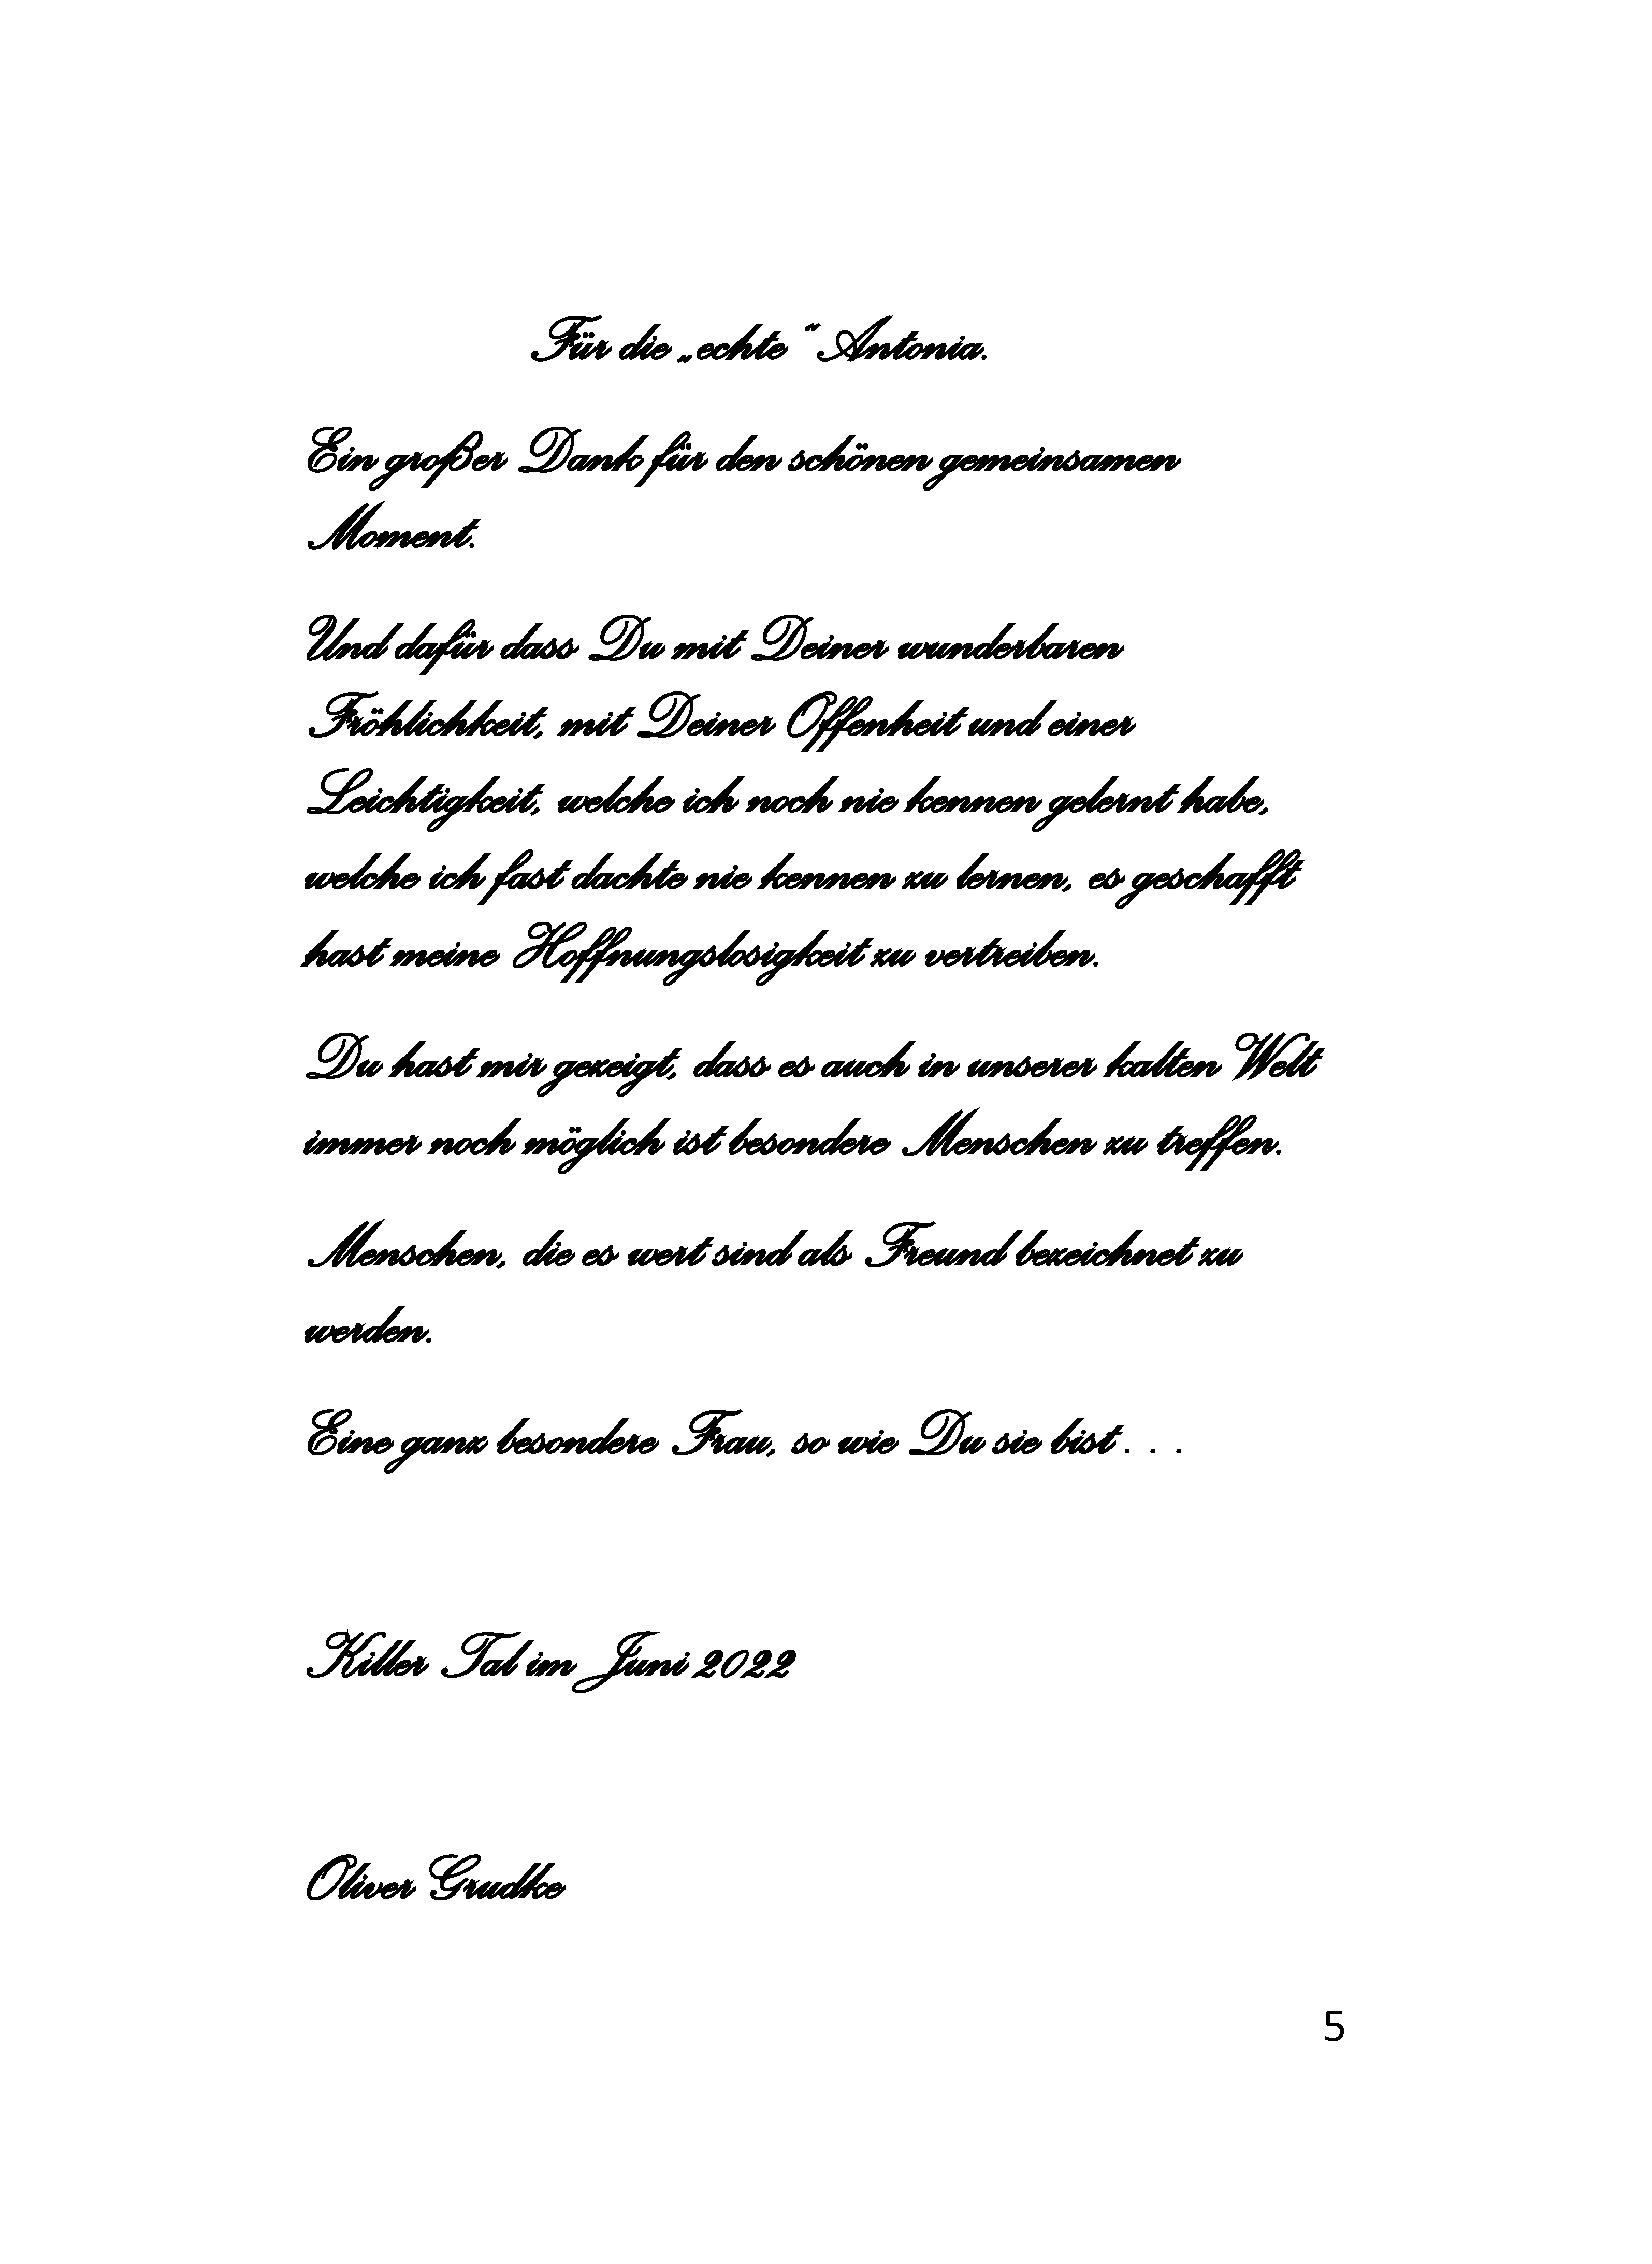 Für die „echte“ Antonia.
Ein großer Dank für den schönen gemeinsamen
Moment.
Und dafür dass Du mit Deiner wunderbaren
Fröhlichkeit, mit Deiner Offenheit und einer
Leichtigkeit, welche ich noch nie kennen gelernt habe,
welche ich fast dachte nie kennen zu lernen, es geschafft
hast meine Hoffnungslosigkeit zu vertreiben.
Du hast mir gezeigt, dass es auch in unserer kalten Welt
immer noch möglich ist besondere Menschen zu treffen.
Menschen, die es wert sind als Freund bezeichnet zu
werden.
Eine ganz besondere Frau, so wie Du sie bist . . .
Killer Tal im Juni 2022
Oliver Grudke
5